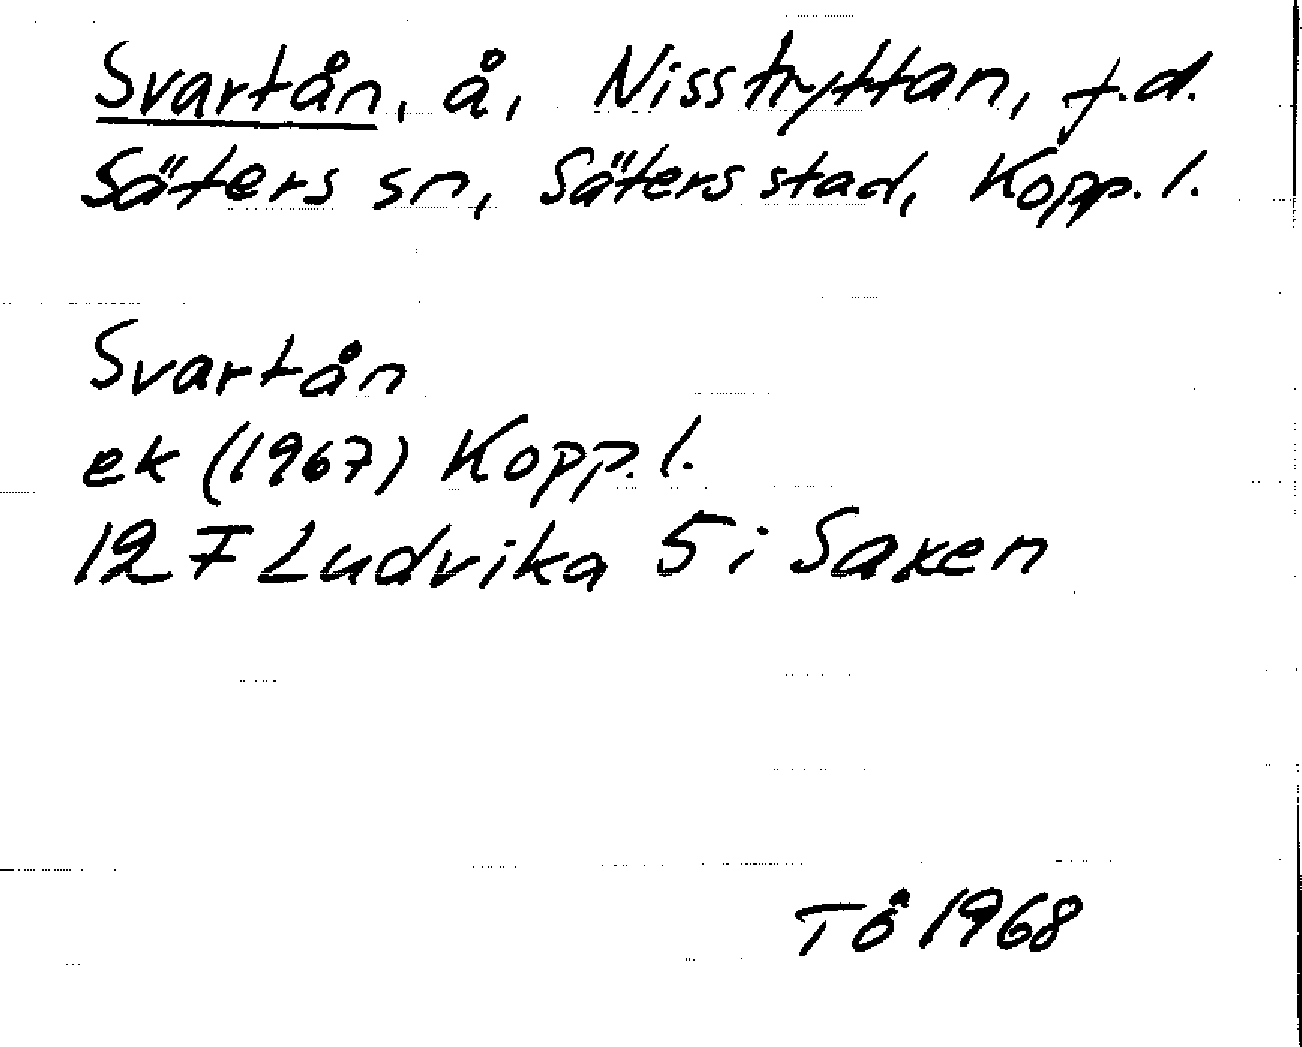 Svartån, å, Nisstryttan, f.d.
Säters sn, Säters stad, Kopp. l.
Svartån
ek (1967) Kopp. l.
12 F Ludvika 5 i Saxen
TÖ 1968